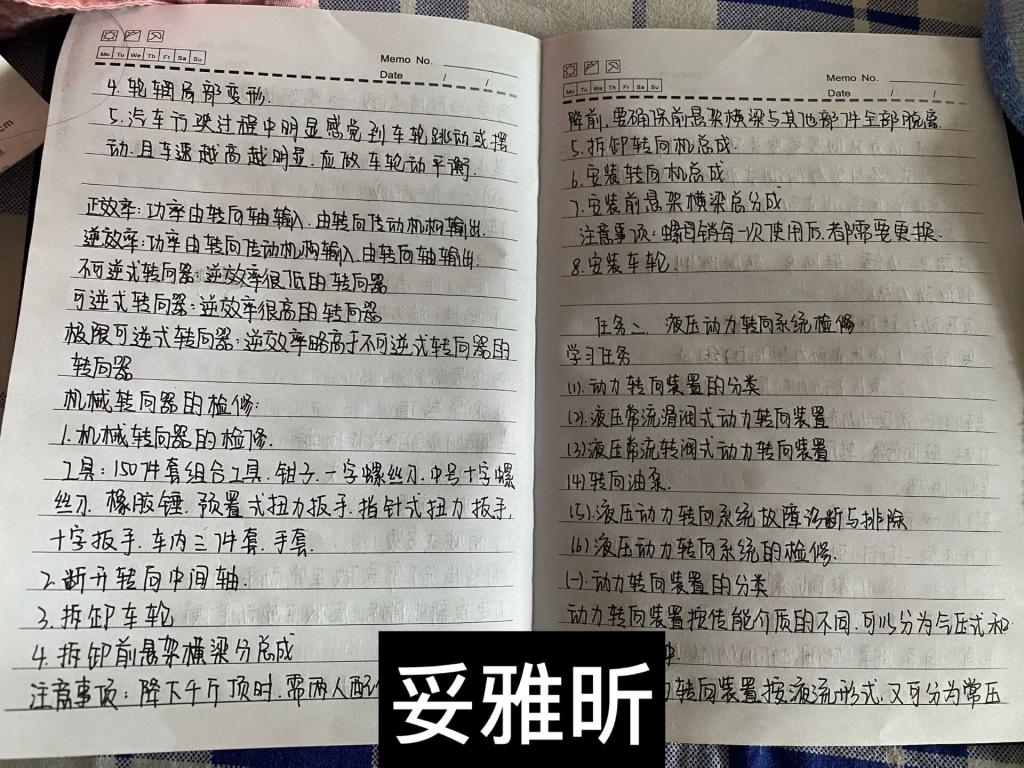 Mo Tu We Th Fr Sa Su
Memo No.
Date / /
4.轮辋局部变形.
5.汽车行驶过程中明显感觉到车轮跳动或摆
动.且车速越高越明显.应做车轮动平衡.
正效率:功率由转向轴输入.由转向传动机构输出.
逆效率:功率由转向传动机构输入.由转向轴输出.
不可逆式转向器:逆效率很低的转向器
可逆式转向器:逆效率很高的转向器
极限可逆式转向器:逆效率略高于不可逆式转向器的
转向器
机械转向器的检修:
1.机械转向器的检修.
工具:150件套组合工具.钳子.一字螺丝刀.中号十字螺
丝刀.橡胶锤.预置式扭力扳手.指针式扭力扳手.
十字扳手.车内三件套.手套.
2.断开转向中间轴.
3.拆卸车轮
4.拆卸前悬架横梁分总成
注意事项:降下千斤顶时.需两人配
Mo Tu We Th Fr Sa Su
Memo No.
Date / /
降前.要确保前悬架横梁与其他部件全部脱离.
5.拆卸转向机总成.
6.安装转向机总成
7.安装前悬架横梁总分成
注意事项:螺母销每一次使用后.都需要更换.
8.安装车轮.
任务二、液压动力转向系统检修
学习任务
(1).动力转向装置的分类
(2).液压常流滑阀式动力转向装置
(3)液压常流转阀式动力转向装置
(4)转向油泵.
(5).液压动力转向系统故障诊断与排除
(6).液压动力转向系统的检修.
(一).动力转向装置的分类
动力转向装置按传能介质的不同.可以分为气压式和
力转向装置按液流形式.又可分为常压
妥雅昕